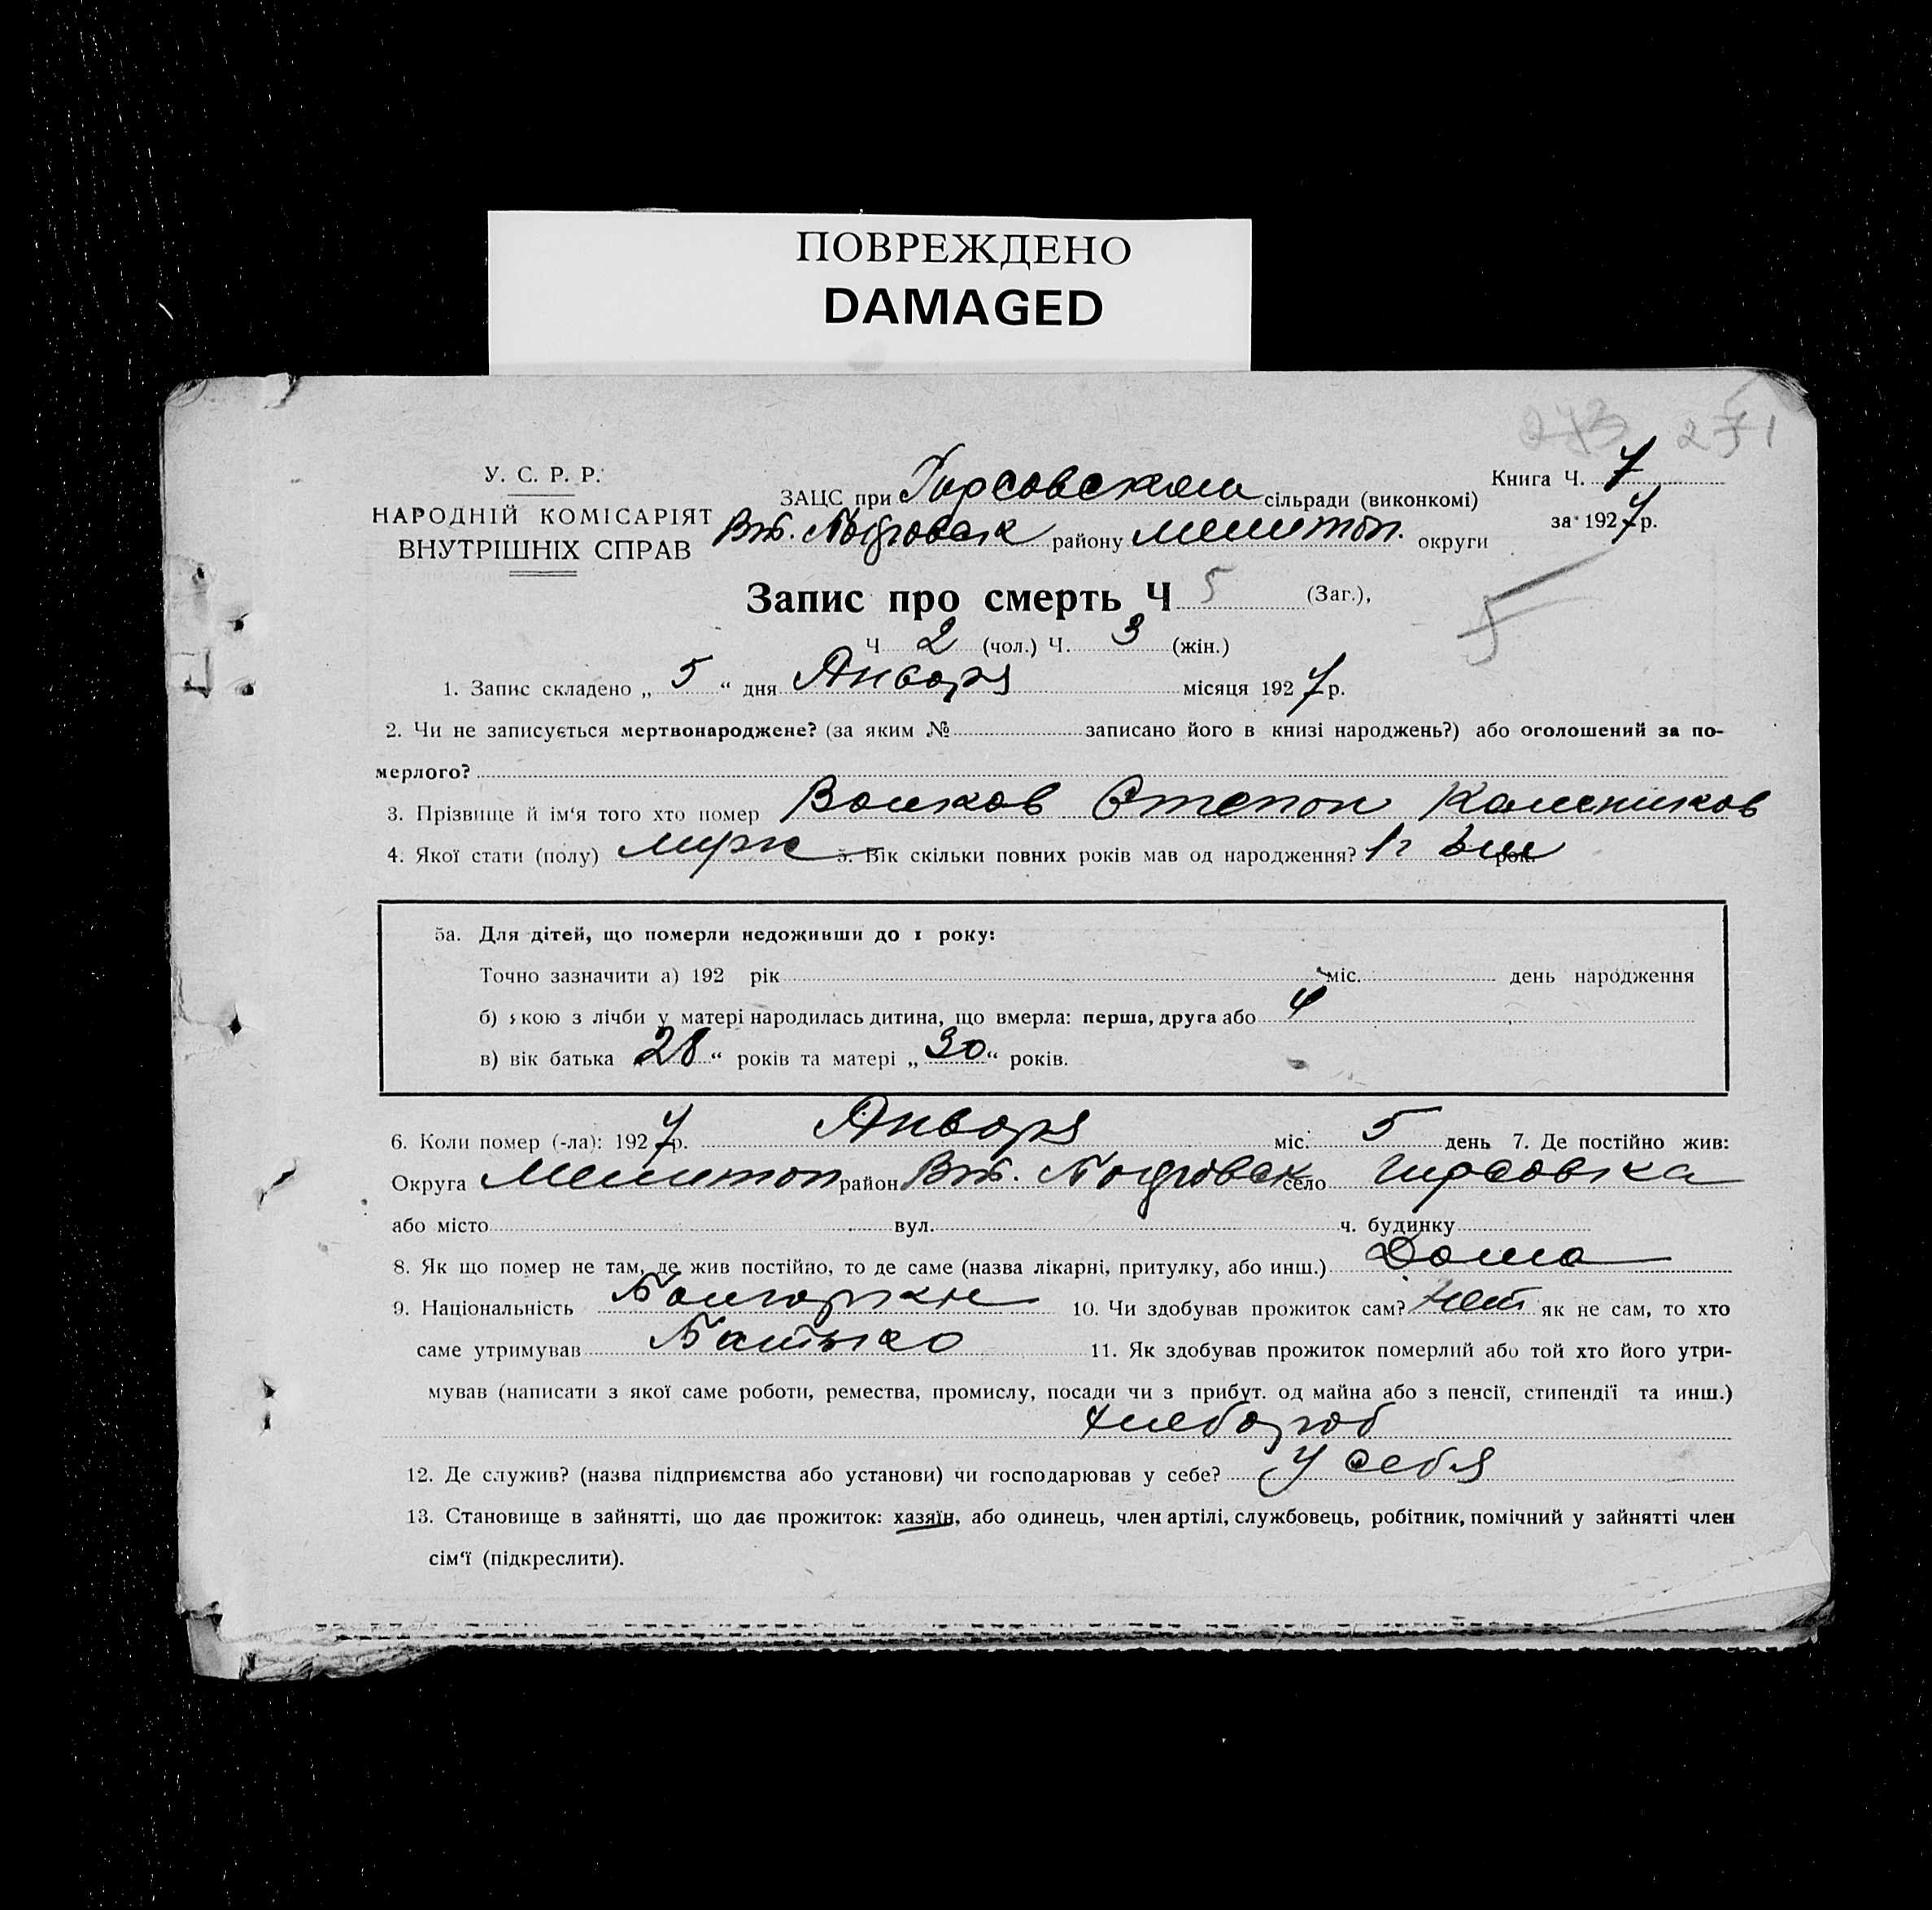 ПОВРЕЖДЕНО
DAMAGED
271
У. С. Р. Р.
НАРОДНІЙ КОМІСАРІЯТ
ВНУТРІШНІХ СПРАВ
ЗАЦС при Гирсовском сільради (виконкомі)
района Мелитоп. округи
Книга Ч. 7
за 1927 р.
Запис про смерть Ч 5 (Заг.),
5
Ч 2 (чол.) Ч. 3 (жін.)
1. Запис складено „ 5 “ дня Января місяця 1927 р.
2. Чи не записується мертвонароджене? (за яким № записано його в книзі народжень?) або оголошений за по-
мерлого?
3. Прізвище й ім‘я того хто помер Волков Степон Колеников
4. Якої стати (полу) муж 5. Вік скільки повних років мав од народження? 1 г рок.
5а. Для дітей, що померли недоживши до 1 року:
Точно зазначити а) 192 рік міс. день народження
б) якою з лічби у матері народилась дитина, що вмерла: перша, друга або 4
в) вік батька 28 “ років та матері „ 30 “ років.
6. Коли помер (-ла): 1927 р. Января міс. 5 день 7. Де постійно жив:
Округа Мелитоп район село Гирсовка
або місто вул. ч. будинку
8. Як що помер не там, де жив постійно, то де саме (назва лікарні, притулку, або инш.) Дома
9. Національність 10. Чи здобував прожиток сам? нет як не сам, то хто
саме утримував Батько 11. Як здобував прожиток померлий або той хто його утри-
мував (написати з якої саме роботи, ремества, промислу, посади чи з прибут. од майна або з пенсії, стипендії та инш.)
хлебороб
12. Де служив? (назва підприємства або установи) чи господарював у себе? у себя
13. Становище в зайнятті, що дає прожиток: хазяїн, або одинець, член артілі, службовець, робітник, помічний у зайнятті член
сім‘ї (підкреслити).